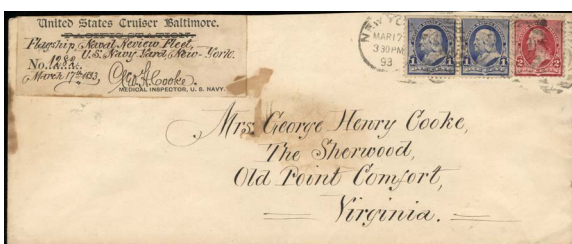 United States Cruiser Baltimore.
PACIFIC STATION
Flagship, Naval Review Fleet,
U.S. Navy Yard, New-York.
No.
March 17th 1893
Geo. H. Cooke.
MEDICAL INSPECTOR, U. S. NAVY.
NEW YO
MAR 17
3 30 PM
93
1 1 1 1 2 2
Mrs. George Henry Cooke,
The Sherwood,
Old Point Comfort,
Virginia.